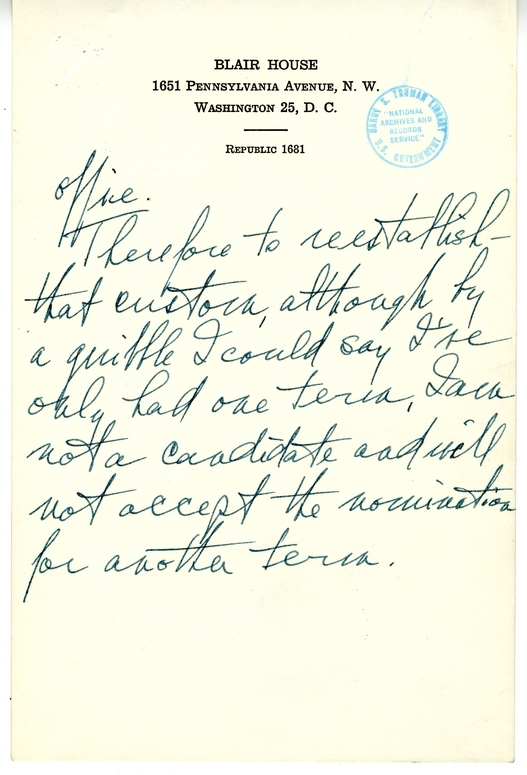 BLAIR HOUSE
1651 PENNSYLVANIA AVENUE, N. W.
WASHINGTON 25, D. C.
REPUBLIC 1681
HARRY S. TRUMAN LIBRARY
"NATIONAL
ARCHIVES AND
RECORDS
SERVICE"
U.S. GOVERNMENT
office.
Therefore to reestablish
that custom, although by
a quibble I could say I've
only had one term, I am
not a candidate and will
not accept the nomination
for another term.